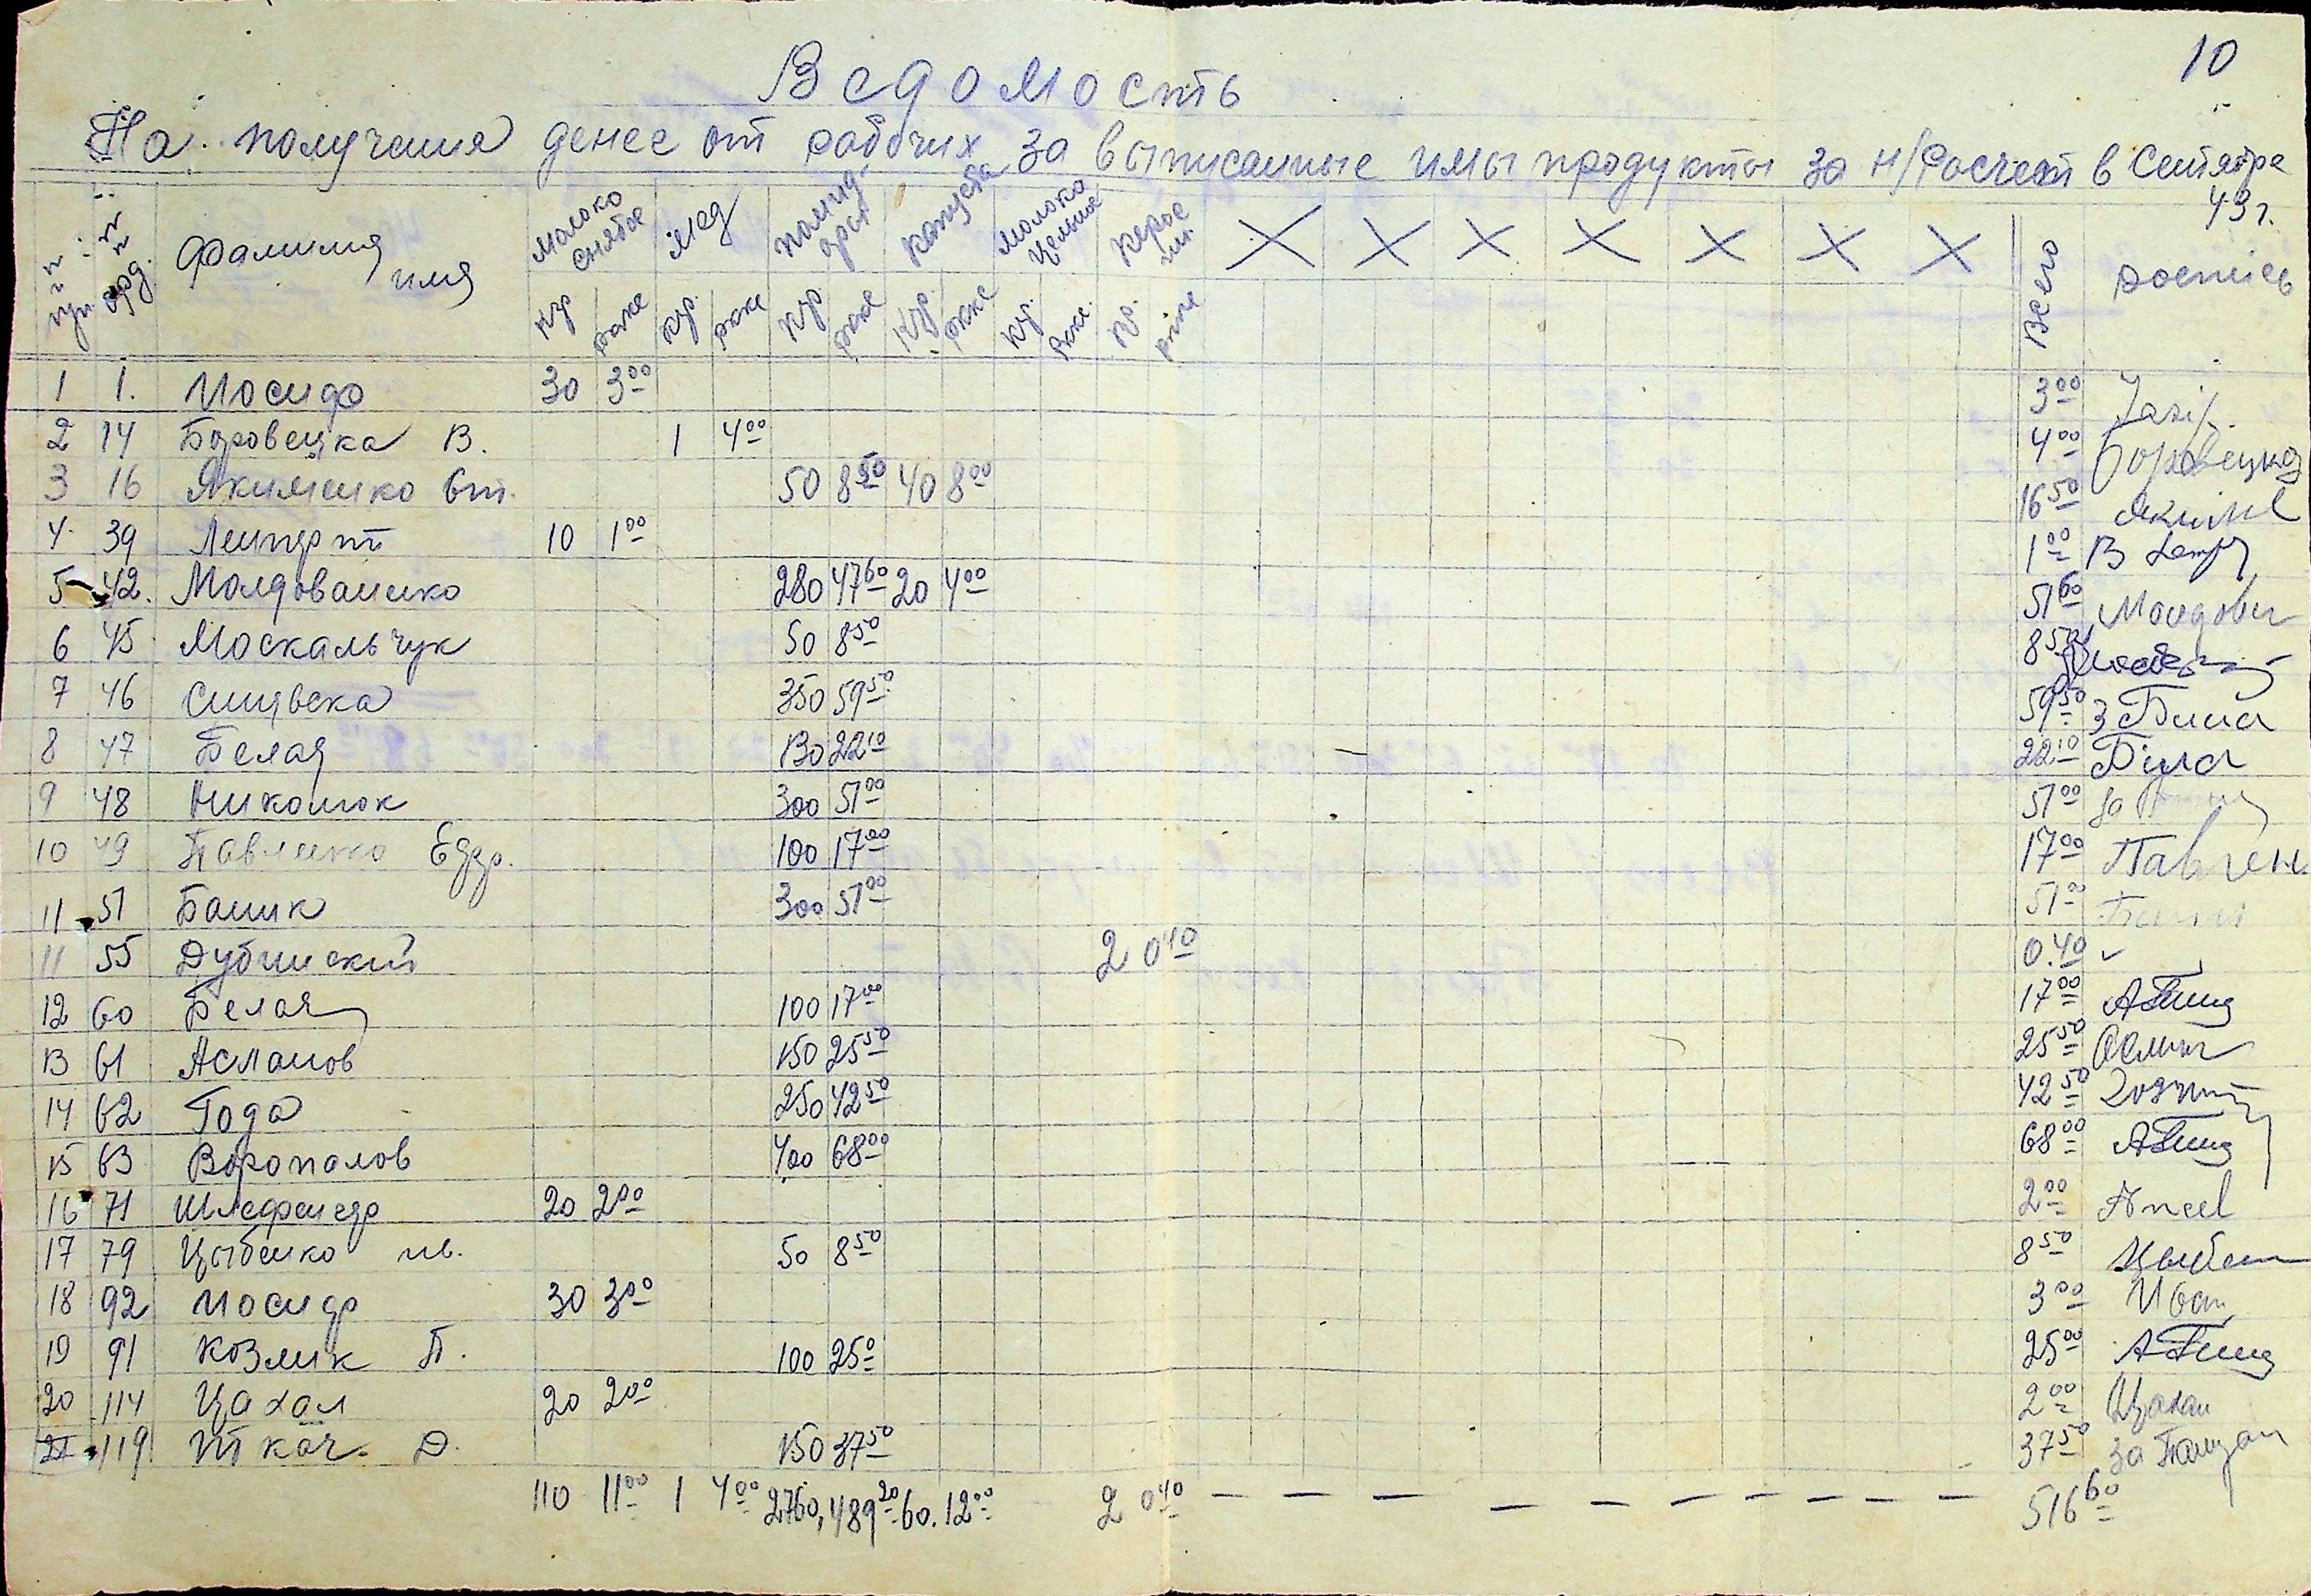 10
Ведомость
На получения денег от рабочих за выписанные имы продукты за н/Расчет в Сентябре 43 г.
№ № п/п. № № орд. Фамилия имя Молоко снятое Мед помидоры капуста Молоко цельное Керосин Всего роспись
кгр рмке кгр. рмке кгр. рмке кгр. рмке кгр. рмке. кг. рмке
1 1. Иосиф 30 3 00 3 00 Jasif
2 14 Боровецка В. 1 4 00 4 00 Боровецка
3 16 Якименко Вт. 50 8 50 40 8 00 16 50 Акиме
4. 39 Лемперт 10 1 00 1 00 В
5 42. Молдованенко 280 47 60 20 4 00 51 60 Молдован
6 45 Москальчук 50 8 50 8 50
7 46 Синявска 350 59 50 59 50
8 47 Белая 130 22 10 22 10 Біла
9 48 Николюк 300 51 00 51 00 за
10 49 Павленко Еффр. 100 17 00 17 00 Павлен
11 51 Баник 300 51 00 51 00
11 55 Дубинский 2 0 40 0.40
12 60 Белая 100 17 00 17 00
13 61 Асланов 150 25 50 25 50
14 62 Года 250 42 50 42 50
15 63 Воропалов 400 68 00 68 00
16 71 Шлефендр 20 2 00 2 00
17 79 Цыбенко ив. 50 8 50 8 50 Цыбен
18 92 Иосиф 30 3 00 3 00 Иван
19 91 Козлик П. 100 25 0 25 00
20 114 Цахал 20 2 00 2 00 Цахал
21 119 Ткач. Д. 150 37 50 37 50 за
110 11 00 1 4 00 2760, 489 20 60. 12 00 2 0 40 — — — — — — — — — 516 60